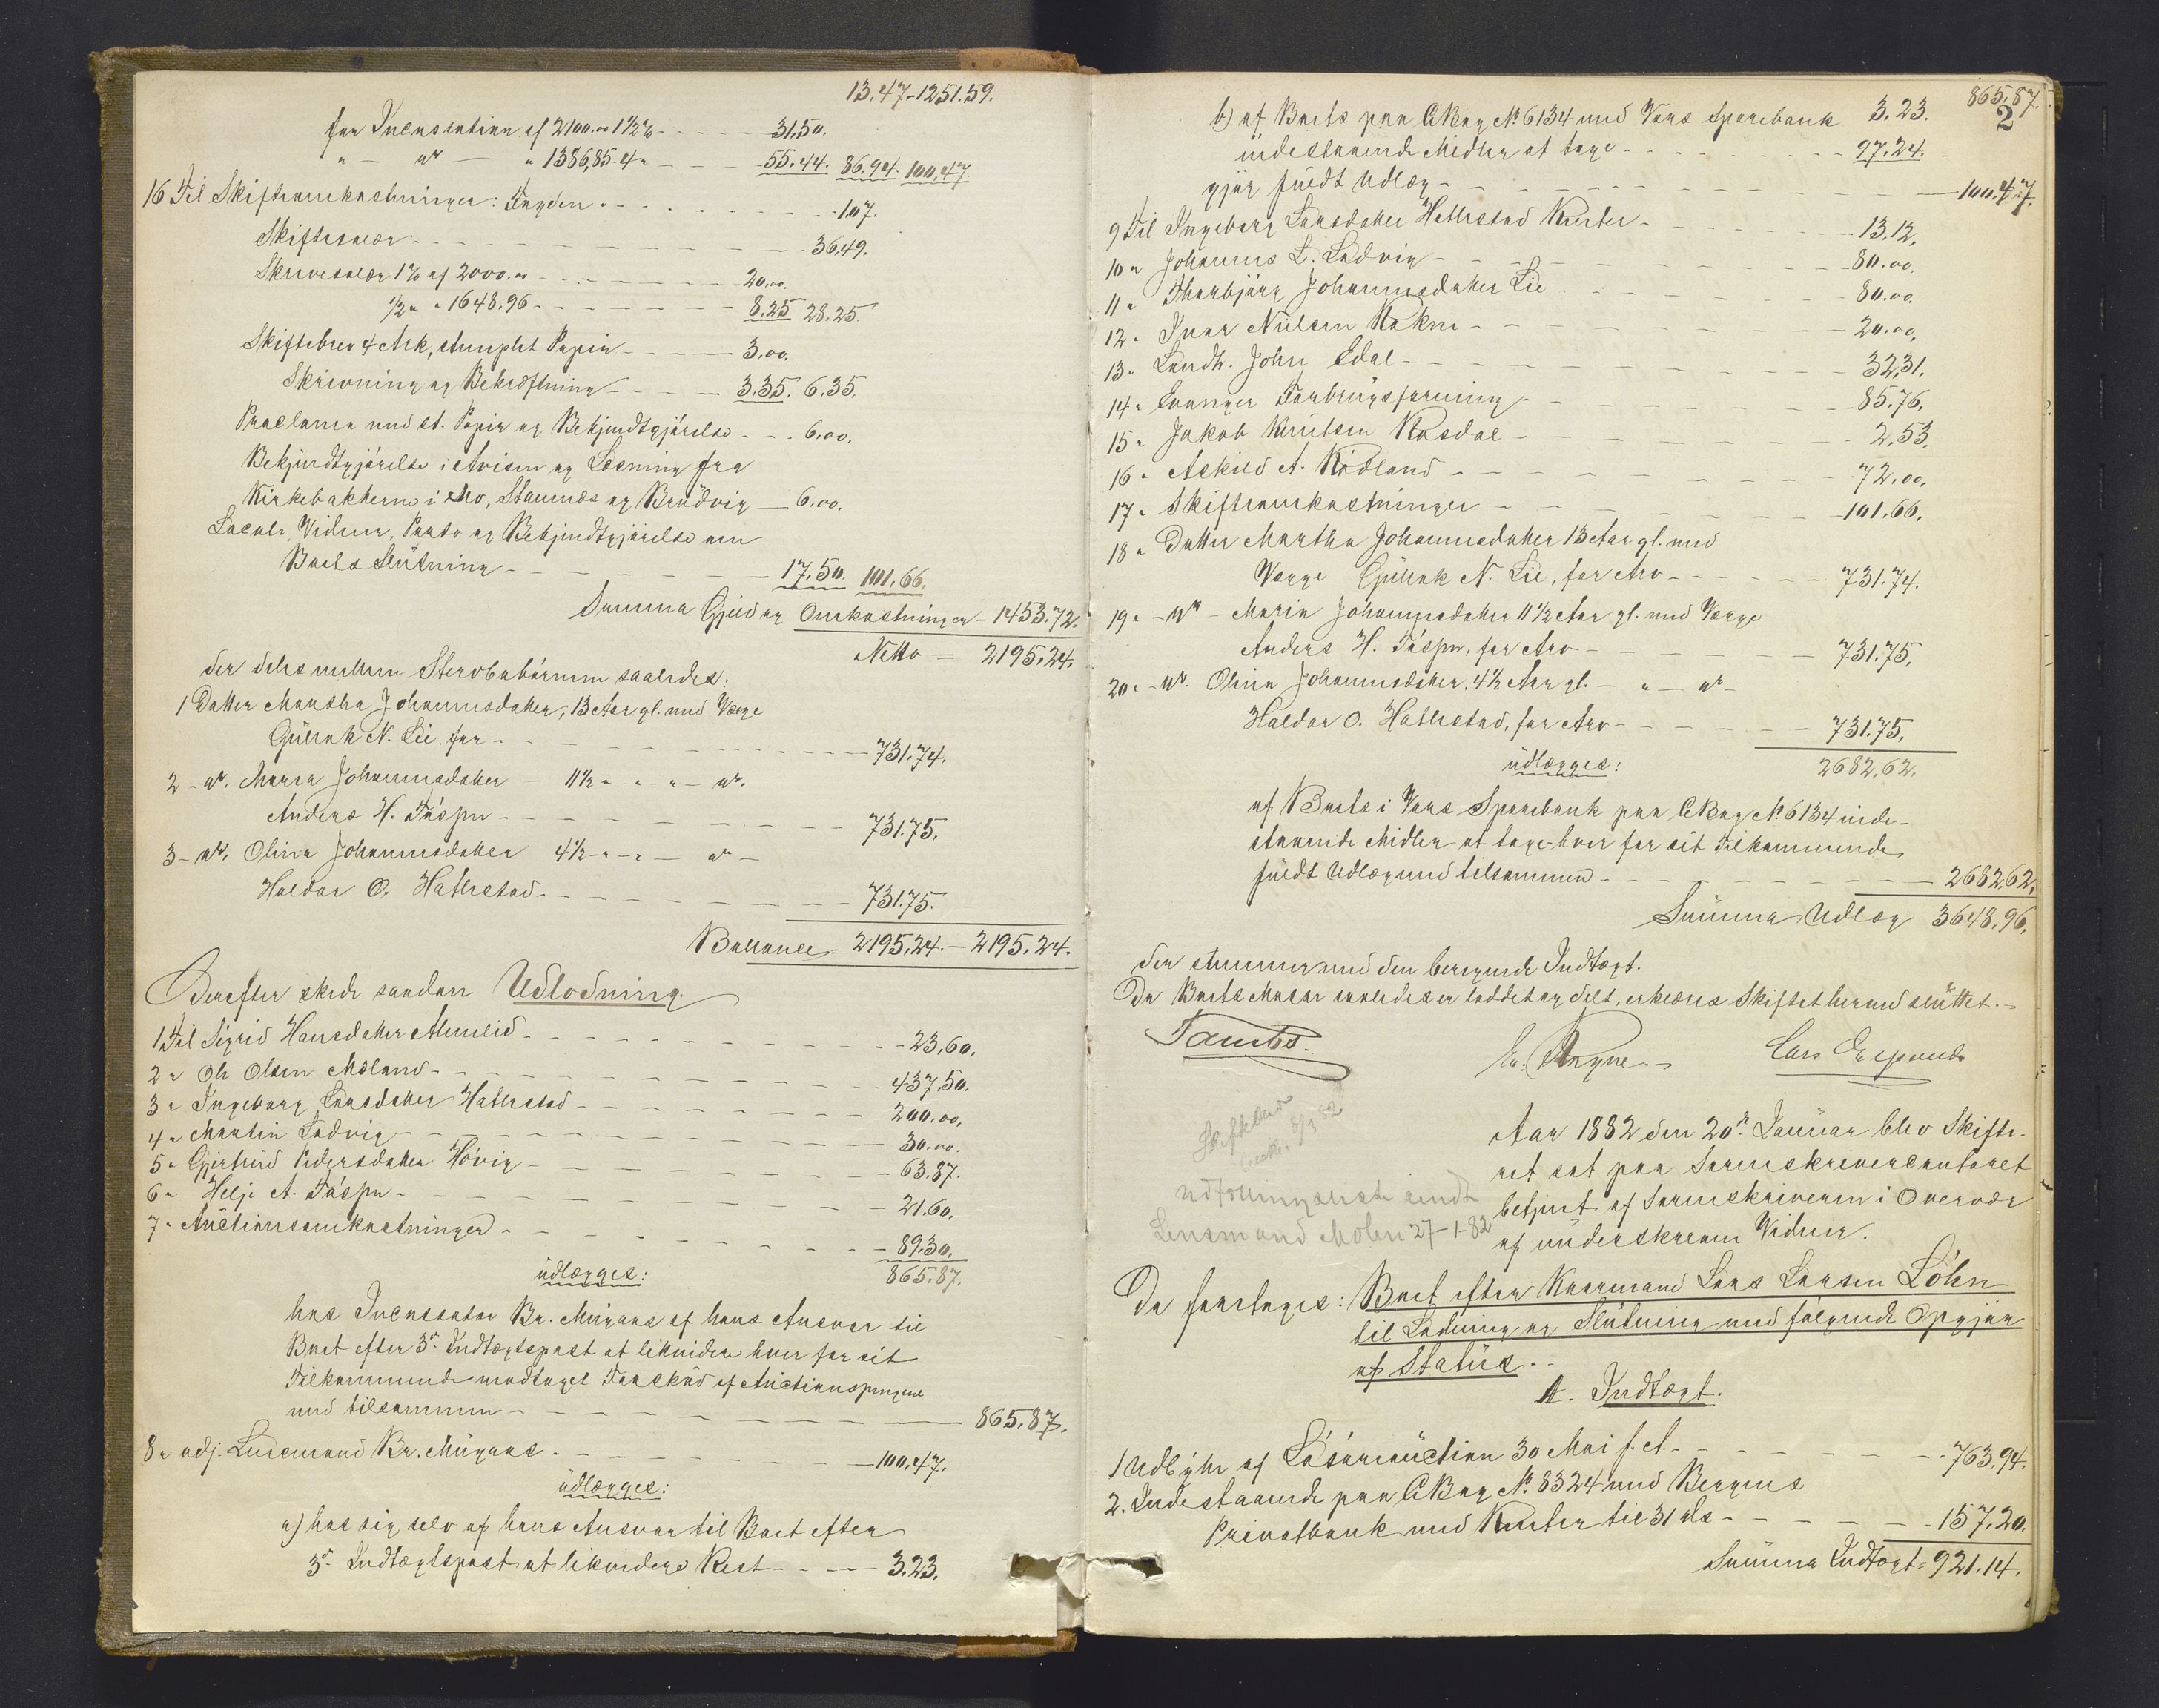 13.47-1251.59.
for Incassation af 2100.00 1½% - - - - 31.50.
" - do - " 1386,85. 4 " - - - 55.44. 86.94. 100.47.
16 Til Skifteomkostninger: Fogden - - - - - - - 1.07.
Skiftesalær - - - - - - - - - 36.49.
Skrivesalær 1% af 2000.00 - - - - - 20.00.
½ " " 1648.96 - - - - - 8.25 28.25.
Skiftebrev 4 Ark, stemplet Papir - - - 3.00.
Skrivning og Bekræftning - - - 3.35. 6.35.
Proclama med st. Papir og Bekjendtgjørelse - - - 6.00.
Bekjendtgjørelse i Avisen og Læsning fra
Kirkebakkerne i Mo, Stamnæs og Brudvig - 6.00.
Locale, Vidner, Porto og Bekjendtgjørelse om
Boets Slutning - - - - - - 17.50. 101.66.
Summa Gjeld og Omkostninger - 1453.72.
Netto = 2195.24.
der deles mellem Sterbobørnene saaledes:
1 Datter Martha Johannesdatter, 13 Aar gl. med Værge
Gulleik N. Lie, for - - - - - - - 731.74.
2 - do. Maria Johannesdatter - 11½ " - " - " - do.
Anders H. Fosse - - - - - - - - 731.75.
3 - do. Olina Johannesdatter 4½ - " - " - do -
Haldor O. Hatlestad - - - - - - - 731.75.
Ballance = 2195.24. - 2195.24.
Derefter skede saadan Udlodning
1 Til Sigrid Hansdatter Almelid - - - - - - - 23.60.
2 " Ole Olsen Mæland - - - - - - - 437.50.
3 " Ingeborg Larsdatter Hatlestad - - - - - 200.00.
4 " Martin Ladvig - - - - - - - - 30.00.
5 " Gjertrud Pedersdatter Høvig - - - - - - 63.87.
6 " Helje A. Fosse - - - - - - - - 21.60.
7 " Auctionsomkostninger - - - - - - - 89.30.
udlægges: 865.87.
hos Incassator Br. Mugaas af hans Ansvar til
Boet efter 3die Indtægtspost at likvidere hver for sit
Tilkommende modtaget Forskud af Auctionspengene
med tilsammen - - - - - - - - - 865.87.
8 " adj. Lensmand Br. Mugaas - - - - - - - 100.47.
udlægges:
a) hos sig selv af hans Ansvar til Boet efter
3die Indtægtspost at likvidere Rest - - - - 3.23.
865.87.
2
b) af Boets paa CBog No 6134 med Voss Sparebank 3.23.
indestaaende Midler at tage - - - - - - - 97.24.
gjør fuldt Udlæg - - - - - - - - - - 100.47.
9 Til Ingeborg Larsdatter Hatlestad Renter - - - - - 13.12.
10 " Johannes L. Ladvig - - - - - - - 80.00.
11 " Thorbjørg Johannesdatter Lie - - - - - - 80.00.
12 " Ivar Nielsen - - - - - - - 20.00.
13 " Landh. John - - - - - - - 32.31.
14 " Evanger Forbrugsforening - - - - - - 85.76.
15 " Jakob Knutsen Rasdal - - - - - - 2.53.
16 " Askild A. Rødland - - - - - - - 72.00.
17 " Skifteomkostninger - - - - - - - 101.66.
18 " Datter Martha Johannesdatter 13 Aar gl. med
Værge Gulleik N. Lie, for Arv - - - - - 731.74.
19 " - do - Maria Johannesdatter 11½ Aar gl. med Værge
Anders H. Fosse, for Arv - - - - - - 731.75.
20 " - do. Olina Johannesdatter, 4½ Aar gl. - " - do -
Haldor O. Hatlestad, for Arv - - - - - - 731.75.
udlægges: 2682.62.
af Boets i Voss Sparebank paa CBog No 6134 inde-
staaende Midler at tage hver for sit Tilkommende
fuldt Udlæg med tilsammen - - - - - - - - 2682.62.
Summa Udlæg 3648.96.
der stemmer med den beregnede Indtægt.
Da Boets Masse saaledes er loddet og delt, erklæres Skiftet hermed sluttet. -
Tambs. Lars
Udlodningsliste sendt
Lensmand Molven 27-1-82
Aar 1882 den 20de Januar blev Skifte-
ret sat paa Sorenskrivercontoret
betjent af Sorenskriveren i Overvær
af underskrevne Vidner.
Da foretoges: Boet efter Kaarmand Lars Larsen Løhn
til Lodning og Slutning med følgende Opgjør
af Status. -
A. Indtægt.
1 Udbytte af Løsøreauction 30 Mai f. A. - - - - - - - 763.94.
2. Indestaaende paa CBog No 8324 med Bergens
Privatbank med Renter til 31 ds - - - - - - 157.20.
Summa Indtægt = 921.14.